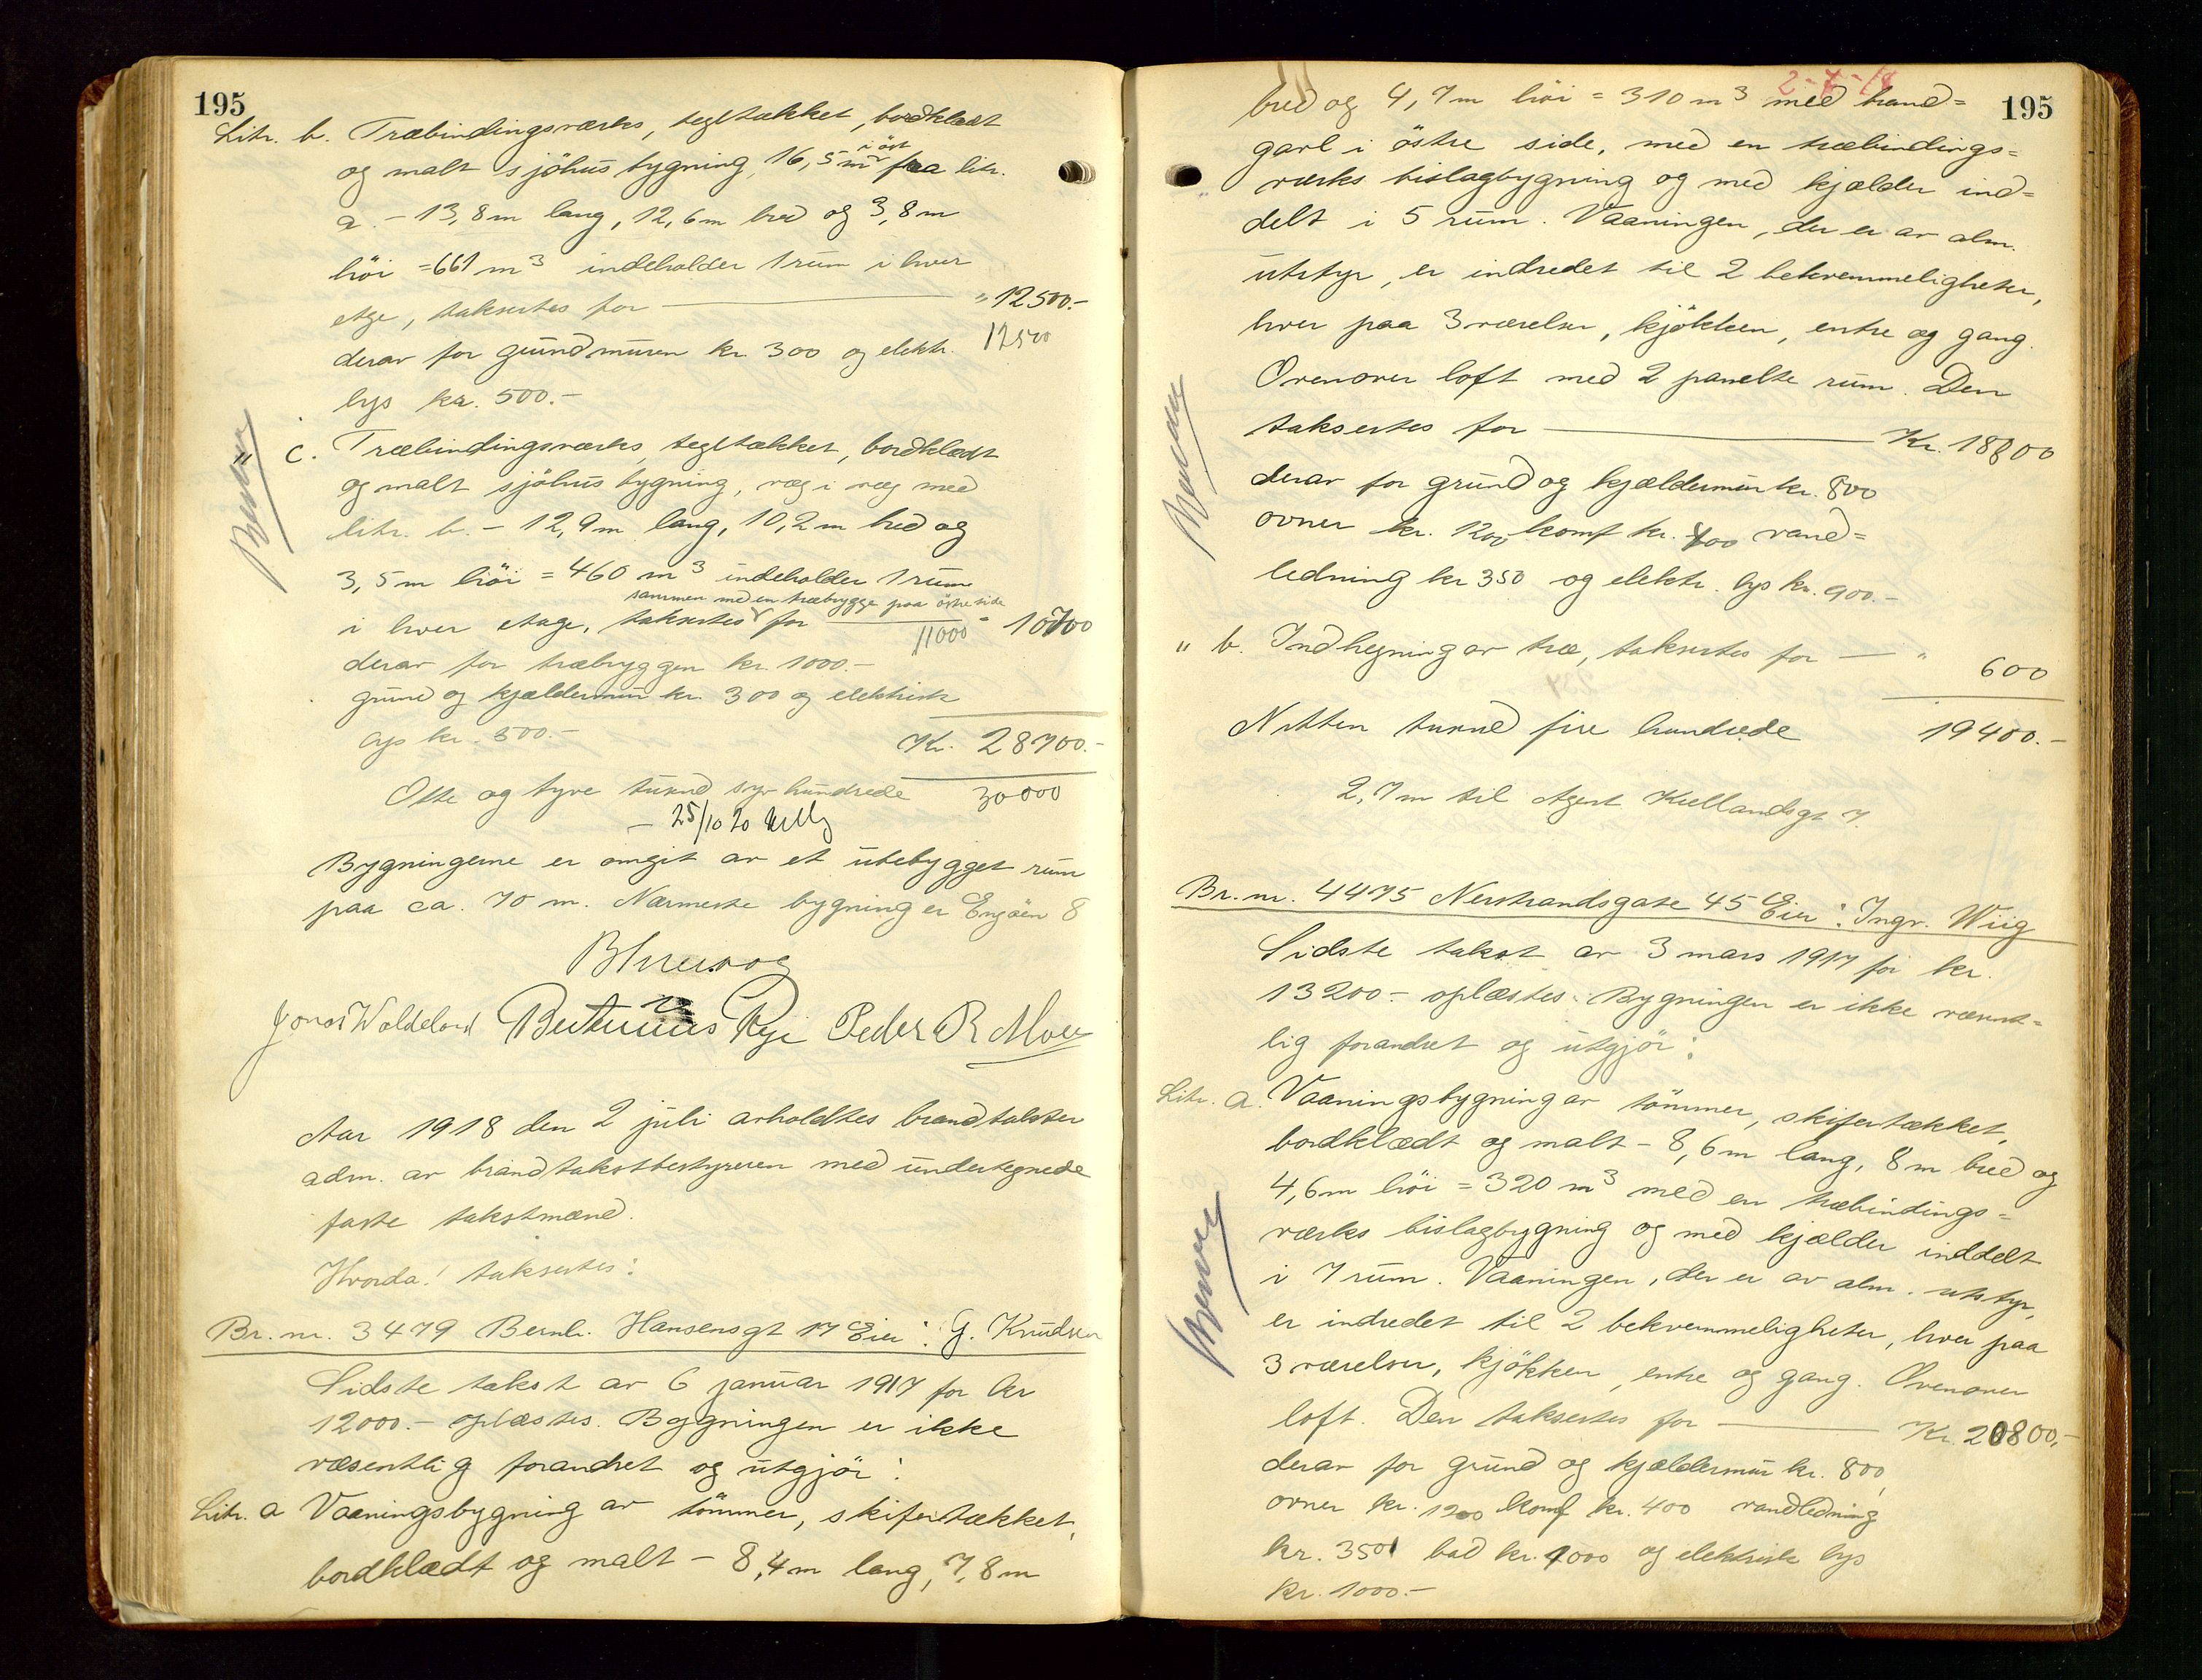 195
Litr. b. Træbindingsverks, tegltækket, bordklædt
i öst
og malt sjöhusbygning, 16,5m fra litr.
a. - 13,8m lang, 12,6m bred og 3,8m
höi = 661 m³ indeholder 1 rum i hver
etge, taksertes for — " 12500.-
12500
derav for grundmuren kr. 300 og elektr.
lys kr. 500.-
" c. Træbindingsverks, tegltækket, bordklædt
og malt sjöhusbygning, væg i væg med
litr. b. - 12,9m lang, 10,2m bred og
3,5m höi = 460 m³ indeholder 1 rum
sammen med en træbrygge paa östre side
i hver etage, taksertes for — " 10700
11000
derav for træbryggen kr. 1000.-
grund og kjældermur kr. 300 og elektrisk
lys kr. 500.-
Kr. 28700.-
Otte og tyve tusend syv hundrede 30000
- 25/10 20
Bygningerne er omgit av et utebygget rum
paa ca. 70 m. Nærmeste bygning er Engöen 8
Jonas Woldeland Bertinius Rege Peder R Moe
Aar 1918 den 2 juli avholdtes brandtakster
adm. av brandtakstbestyreren med undertegnede
faste takstmænd.
Hvorda! taksertes:
Br. nr. 3479 Bernh. Hansensgt 17 Eier: G. Knudsen
Sidste takst av 6 januar 1917 for kr
12000.- oplæstes. Bygningen er ikke
væsentlig forandret og utgjör:
Litr. a Vaaningsbygning av tömmer, skifertækket,
bordklædt og malt - 8,4m lang, 7,8m
2-7-18
195
bred og 4,7m höi = 310 m³ med brand=
gavl i östre side, med en træbindings=
verks bislagbygning og med kjælder ind=
delt i 5 rum. Vaaningen, der er av alm.
utstyr, er indredet til 2 bekvemmeligheter,
hver paa 3 værelser, kjökken, entre og gang.
Ovenover loft med 2 panelte rum. Den
taksertes for — Kr. 18800
derav for grund og kjældermur kr. 800
ovner kr. 1200 komf kr. 400 vand=
ledning kr 350 og elektr. lys kr. 900.-
" b. Indhegning av træ, taksertes for — " 600
Nitten tusend fire hundrede 19400.-
2,7m til Agent Kiellandsgt 7.
Br. nr. 4475 Nerstrandsgate 45 Eier: Ingv. Wiig
Sidste takst av 3 mars 1917 for kr.
13200.- oplæstes. Bygningen er ikke væsent=
lig forandret og utgjör:
Litr. a. Vaaningsbygning av tömmer, skifertækket,
bordklædt og malt - 8,6m lang, 8m bred og
4,6m höi = 320 m³ med en træbindings=
verks bislagbygning og med kjælder inddelt
i 7 rum. Vaaningen, der er av alm. utstyr,
er indredet til 2 bekvemmeligheter, hver paa
3 værelser, kjökken, entre og gang. Ovenover
loft. Den taksertes for — Kr. 20800.-
derav for grund og kjældermur kr. 800,
ovner kr. 1200 komf kr. 400 vandledning
kr. 350 bad kr. 1000 og elektrisk lys
kr. 1000.-